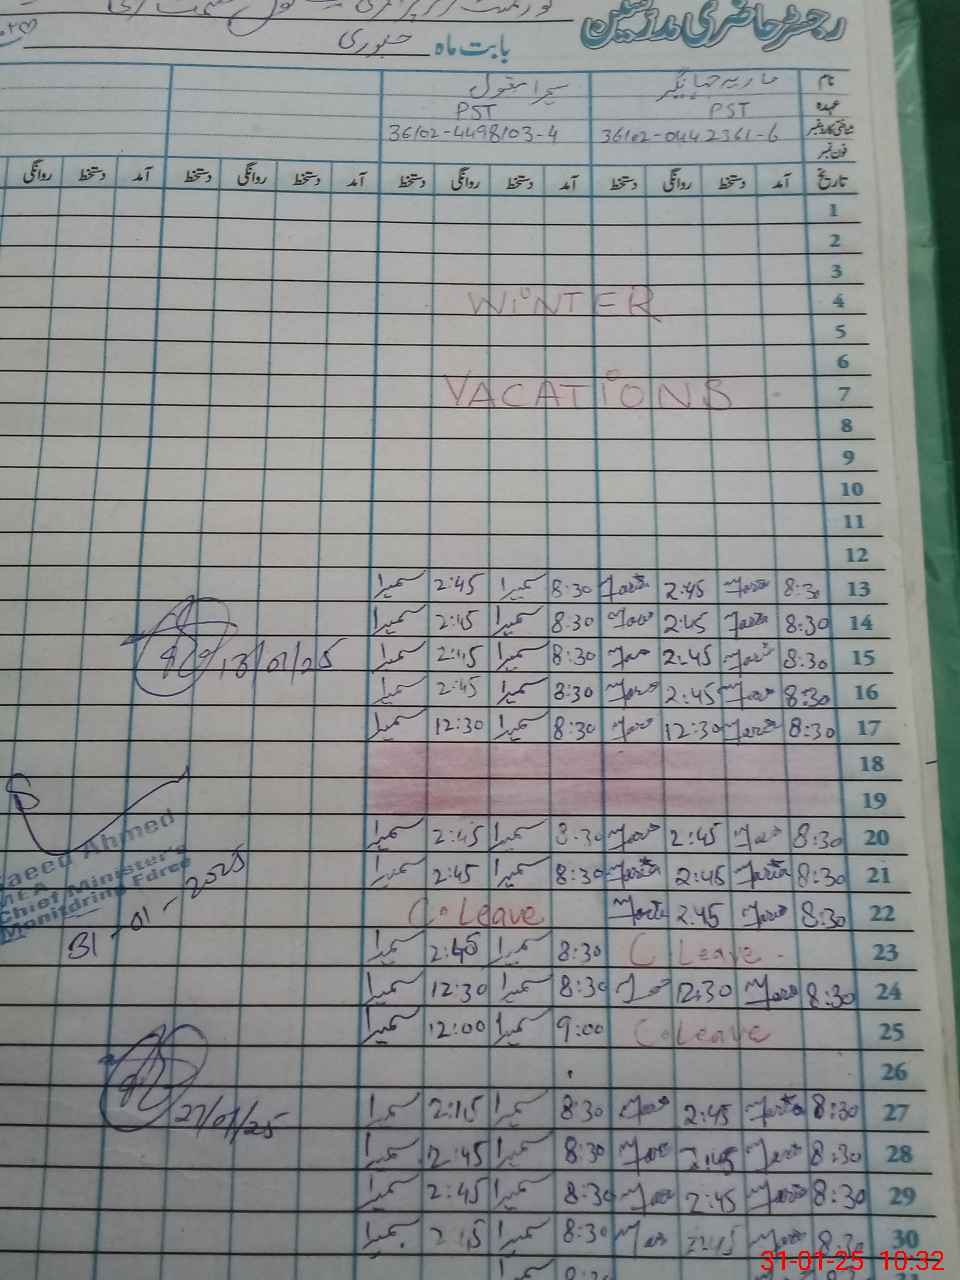 رجسٹر حاضری مدرسین
بابت ماہ جنوری
نام ماریہ جہانگیر سمیرا بتول
عہدہ PST PST
شناختی کارڈ نمبر 36102-0442361-6 36102-4498103-4
فون نمبر
تاریخ آمد دستخط روانگی دستخط آمد دستخط روانگی دستخط آمد دستخط روانگی دستخط آمد دستخط روانگی
1
2
3
4 WINTER
5
6
7 VACATIONS
8
9
10
11
12
13 8:30 Maria 2:45 Maria 8:30 سمیرا 2:45 سمیرا
14 8:30 Maria 2:45 Maria 8:30 سمیرا 2:45 سمیرا
15 8:30 Maria 2:45 Maria 8:30 سمیرا 2:45 سمیرا
13/01/25
16 8:30 Maria 2:45 Maria 8:30 سمیرا 2:45 سمیرا
17 8:30 Maria 12:30 Maria 8:30 سمیرا 12:30 سمیرا
18
19
20 8:30 Maria 2:45 Maria 8:30 سمیرا 2:45 سمیرا
21 8:30 Maria 2:45 Maria 8:30 سمیرا 2:45 سمیرا
22 8:30 Maria 2:45 Maria C. Leave
aeed Ahmed
MEA
Chief Minister's
Monitoring Force
31-01-2025
23 C Leave 8:30 سمیرا 2:45 سمیرا
24 8:30 Maria 12:30 Maria 8:30 سمیرا 12:30 سمیرا
25 C. Leave 9:00 سمیرا 12:00 سمیرا
26
27 8:30 Maria 2:45 Maria 8:30 سمیرا 2:45 سمیرا
27/01/25
28 8:30 Maria 2:45 Maria 8:30 سمیرا 2:45 سمیرا
29 8:30 Maria 2:45 Maria 8:30 سمیرا 2:45 سمیرا
30 8:30 Maria 2:45 Maria 8:30 سمیرا 2:45 سمیرا
8:30
31-01-25 10:32